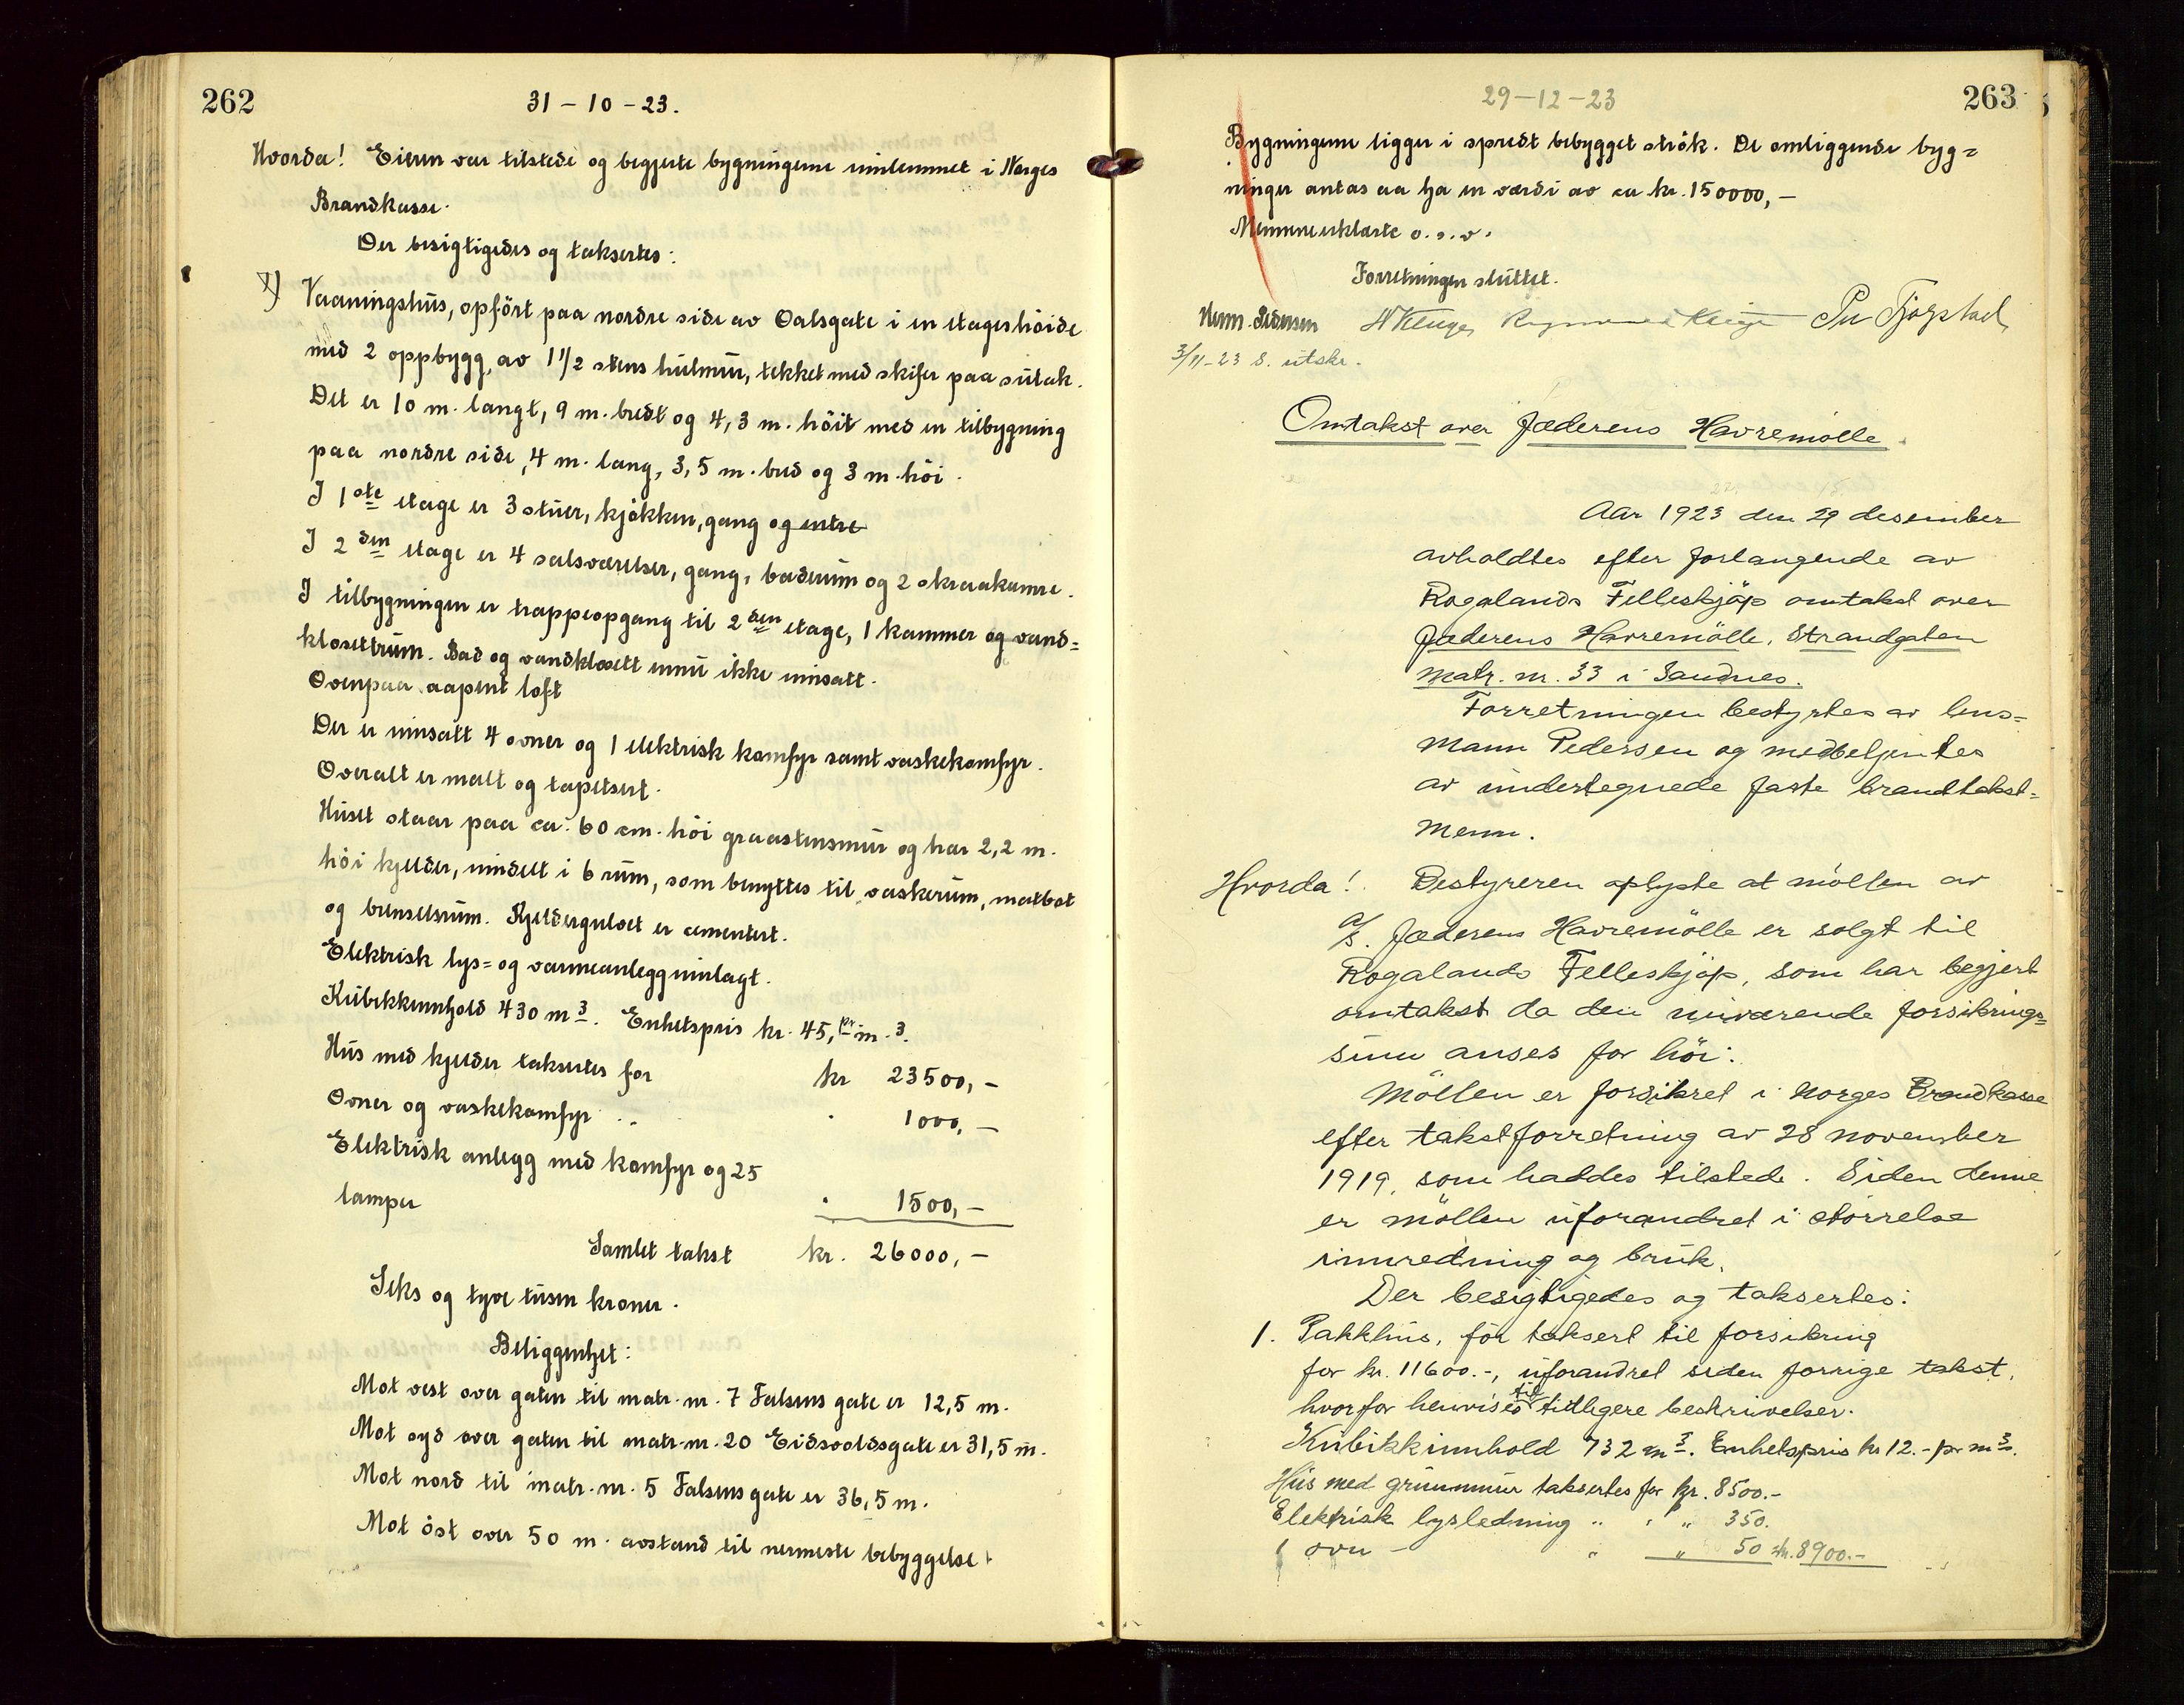 262
31 – 10 – 23.
Hvorda! Eieren var tilstede og begjerte bygningerne innlemmet i Norges
Brandkasse.
Der besigtigedes og taksertes:
1) Vaaningshus, opført paa nordre side av Oalsgate i en etages høide
med 2 oppbygg, av 1 1/2 stens hulmur, tekket med skifer paa sutak.
Det er 10 m. langt, 9 m. bredt og 4,3 m. høit med en tilbygning
paa nordre side, 4 m. lang, 3,5 m. bred og 3 m. høi.
I 1ste etage er 3 stuer, kjøkken, gang og entre
I 2den etage er 4 salsværelser, gang, baderum og 2 skraakamre.
I tilbygningen er trappeopgang til 2den etage, 1 kammer og vand=
klosettrum. Bad og vandklosett ennu ikke innsatt.
Ovenpaa aapent loft
Der er innsatt 4 ovner og 1 elektrisk komfyr samt vaskekomfyr.
Overalt er malt og tapetsert.
Huset staar paa ca. 60 cm. høi graastensmur og har 2,2 m.
høi kjelder, inndelt i 6 rum, som benyttes til vaskerum, matbod
og brenselsrum. Kjeldergulvet er cementert.
Elektrisk lys= og varmeanlegg innlagt.
Kubikkinnhold 430 m3. Enhetspris kr. 45,- pr m.3.
Hus med kjelder taksertes for kr 23500,–
Ovner og vaskekomfyr .. . 1000,–
Elektrisk anlegg med komfyr og 25
lamper . 1500,–
Samlet takst kr. 26000,–
Seks og tyve tusen kroner.
Beliggenhet:
Mot vest over gaten til matr. nr. 7 Falsens gate er 12,5 m.
Mot syd over gaten til matr. nr. 20 Eidsvoldsgate er 31,5 m.
Mot nord til matr. nr. 5 Falsens gate er 36,5 m.
Mot øst over 50 m. avstand til nermeste bebyggelse.
29–12–23
263
Bygningerne ligger i spredt bebygget strøk. De omliggende byg=
ninger antas aa ha en værdi av ca kr. 150000,–
Mennene erklærte o.s.v.
Forretningen sluttet.
Herm. Pedersen
3/11-23 S. utskr.
Omtakst over Jæderens Havremølle.
Aar 1923 den 29 desember
avholdtes efter forlangende av
Rogalands Felleskjøp omtakst over
Jæderens Havremølle, Strandgaten
matr. nr. 33 i Sandnes.
Forretningen bestyrtes av lens=
mann Pedersen og medbetjentes
av undertegnede faste brandtakst=
menn.
Hvorda! Bestyreren oplyste at møllen av
A/S. Jæderens Havremølle er solgt til
Rogalands Felleskjøp, som har begjert
omtakst da den nuværende forsikrings=
sum anses for høi.
Møllen er forsikret i Norges Brandkasse
efter takstforretning av 28 november
1919, som haddes tilstede. Siden denne
er møllen uforandret i størrelse
innredning og bruk.
Der besigtigedes og taksertes:
1. Pakkhus, før taksert til forsikring
for kr. 11600.-, uforandret siden forrige takst,
hvorfor henvises til tidligere beskrivelser.
Kubikkinnhold 732 m3. Enhetspris kr 12.- pr m3.
Hus med grunnmur taksertes for kr. 8500.-
Elektrisk lysledning " " " 350.
1 ovn – " " 50 kr. 8900.-